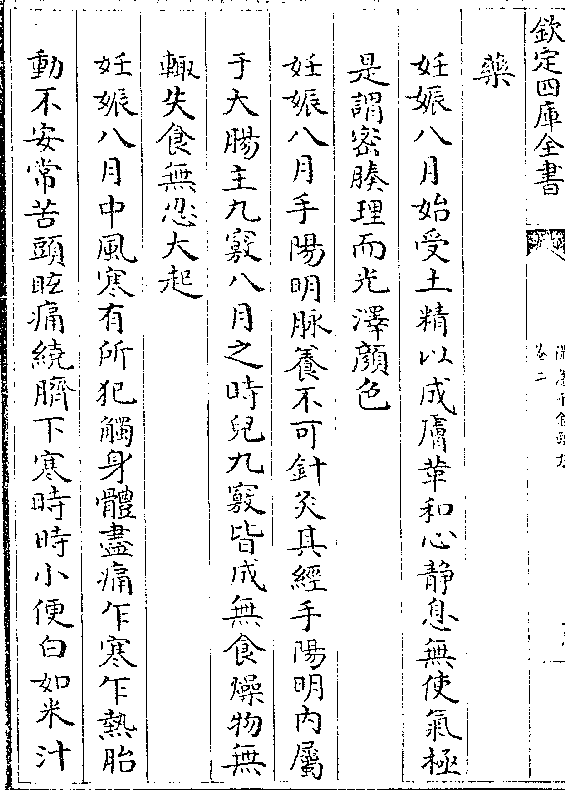 欽定四庫全書
卷二
藥
妊娠八月始受土精以成膚革和心靜息無使氣極
是謂密腠理而光澤顔色
妊娠八月手陽明脉養不可針灸其經手陽明内屬
于大腸主九竅八月之時兒九竅皆成無食燥物無
輙失食無忍大起
妊娠八月中風寒有所犯觸身體盡痛乍寒乍熱胎
動不安常苦頭眩痛繞臍下寒時時小便白如米汁